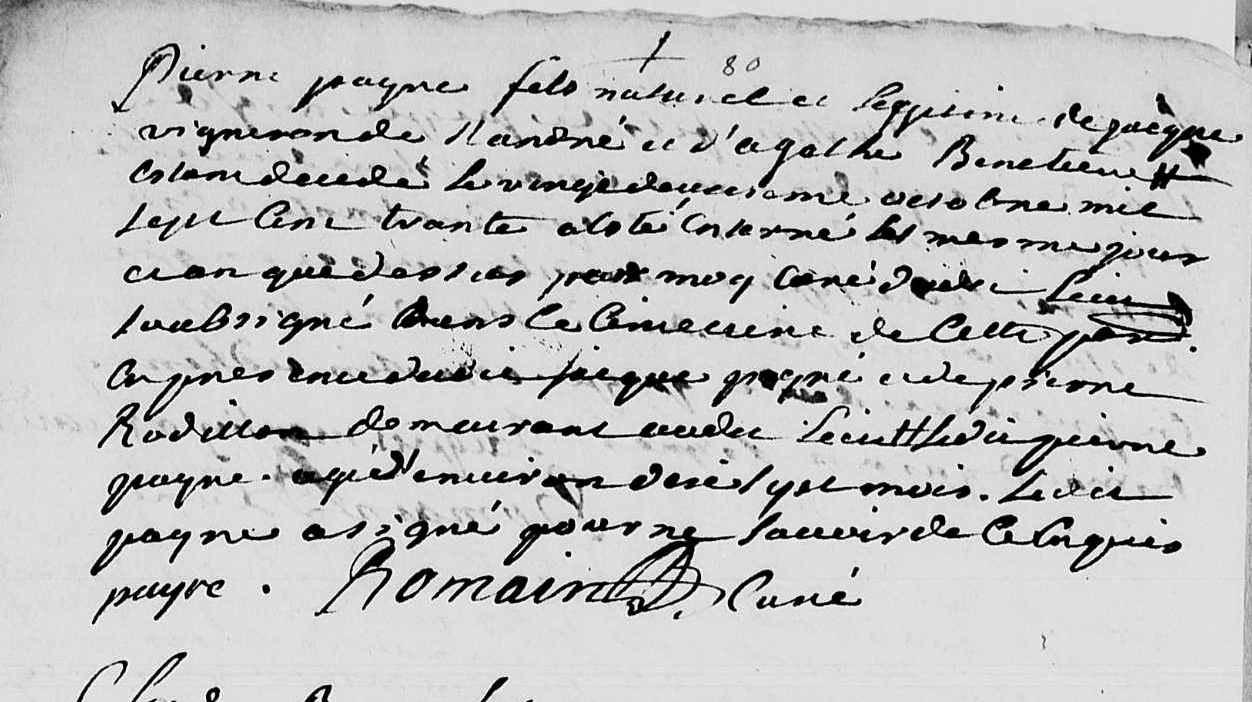 80
Pierre payre fils naturel et legitime de jacque
vigneron de st andré et d'agathe Benetiere #
estant decedé le vingt deuxieme octobre mil
sept cent trante a esté enterré les mesme jour
et an que dessus par moy curé dudit lieu
soubsigné dans le cimetiere de cette par.
en presence dudit jacque payre et de pierre
Rodillon demeurant audit lieu # ledit pierre
payre. agé d'environ dixe sept mois. ledit
payre a signé pour ne savoir de ce enquis
payre. Romain Curé